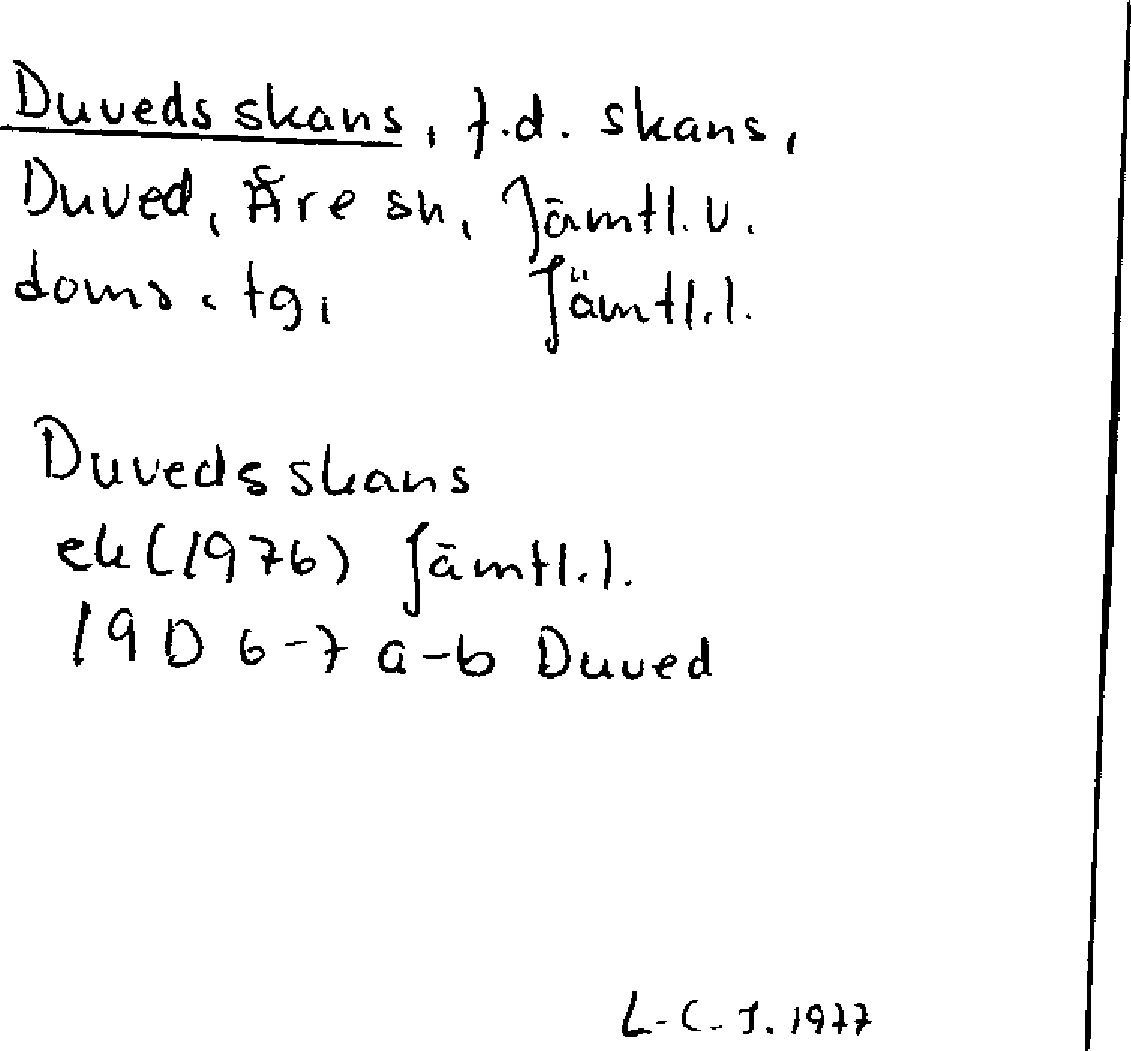 Duveds skans, f.d. skans,
Duved, Åre sn, Jämtl. v.
doms. tg, Jämtl. l.
Duveds skans
ek (1976) Jämtl. l.
19 D 6-7 a-b Duved
L-C. J. 1977